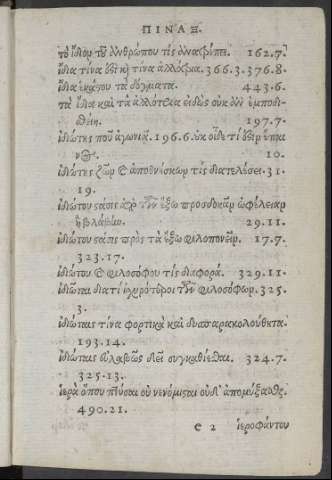 ΠΙΝΑΞ.
τὸ ἴδιον τοῦ ἀνθρώπου τίς ἀνατρέπει. 162.7.
ἴδια τίνα ἐστὶ καὶ τίνα ἀλλότρια. 366.3. 376.8.
ἴδια ἑκάστου τὰ δόγματα. 443.6.
τὰ ἴδια καὶ τὰ ἀλλότρια εἰδὼς οὐκ ἂν ἐμποδι-
σθείη. 197.7.
ἰδιώτης ποῦ ἀγωνιᾷ. 196.6. οὐκ οἶδε τί ἐστιν
10.
ἰδιώτης ζῶν καὶ ἀποθνήσκων τίς διατελέσει. 31.
19.
ἰδιώτου στάσις ἀπὸ τῶν ἔξω προσδοκᾶν ὠφέλειαν
ἢ βλάβην. 29.11.
ἰδιώτου στάσις πρὸς τὰ ἔξω φιλοπονεῖν. 17.7.
323.17.
ἰδιώτου καὶ φιλοσόφου τίς διαφορά. 329.11.
ἰδιῶται διατί ἰσχυρότεροι τῶν φιλοσόφων. 325.
3.
ἰδιώταις τίνα φορτικὰ καὶ δυσπαρακολούθητα.
193.14.
ἰδιώταις εὐλαβῶς δεῖ συγκαθίεσθαι. 324.7.
325.13.
ἱερὰ ὅπου πτύσαι οὐ νενόμισται οὐδ' ἀπομύξασθαι.
490.21.
e 2 ἱεροφάντου